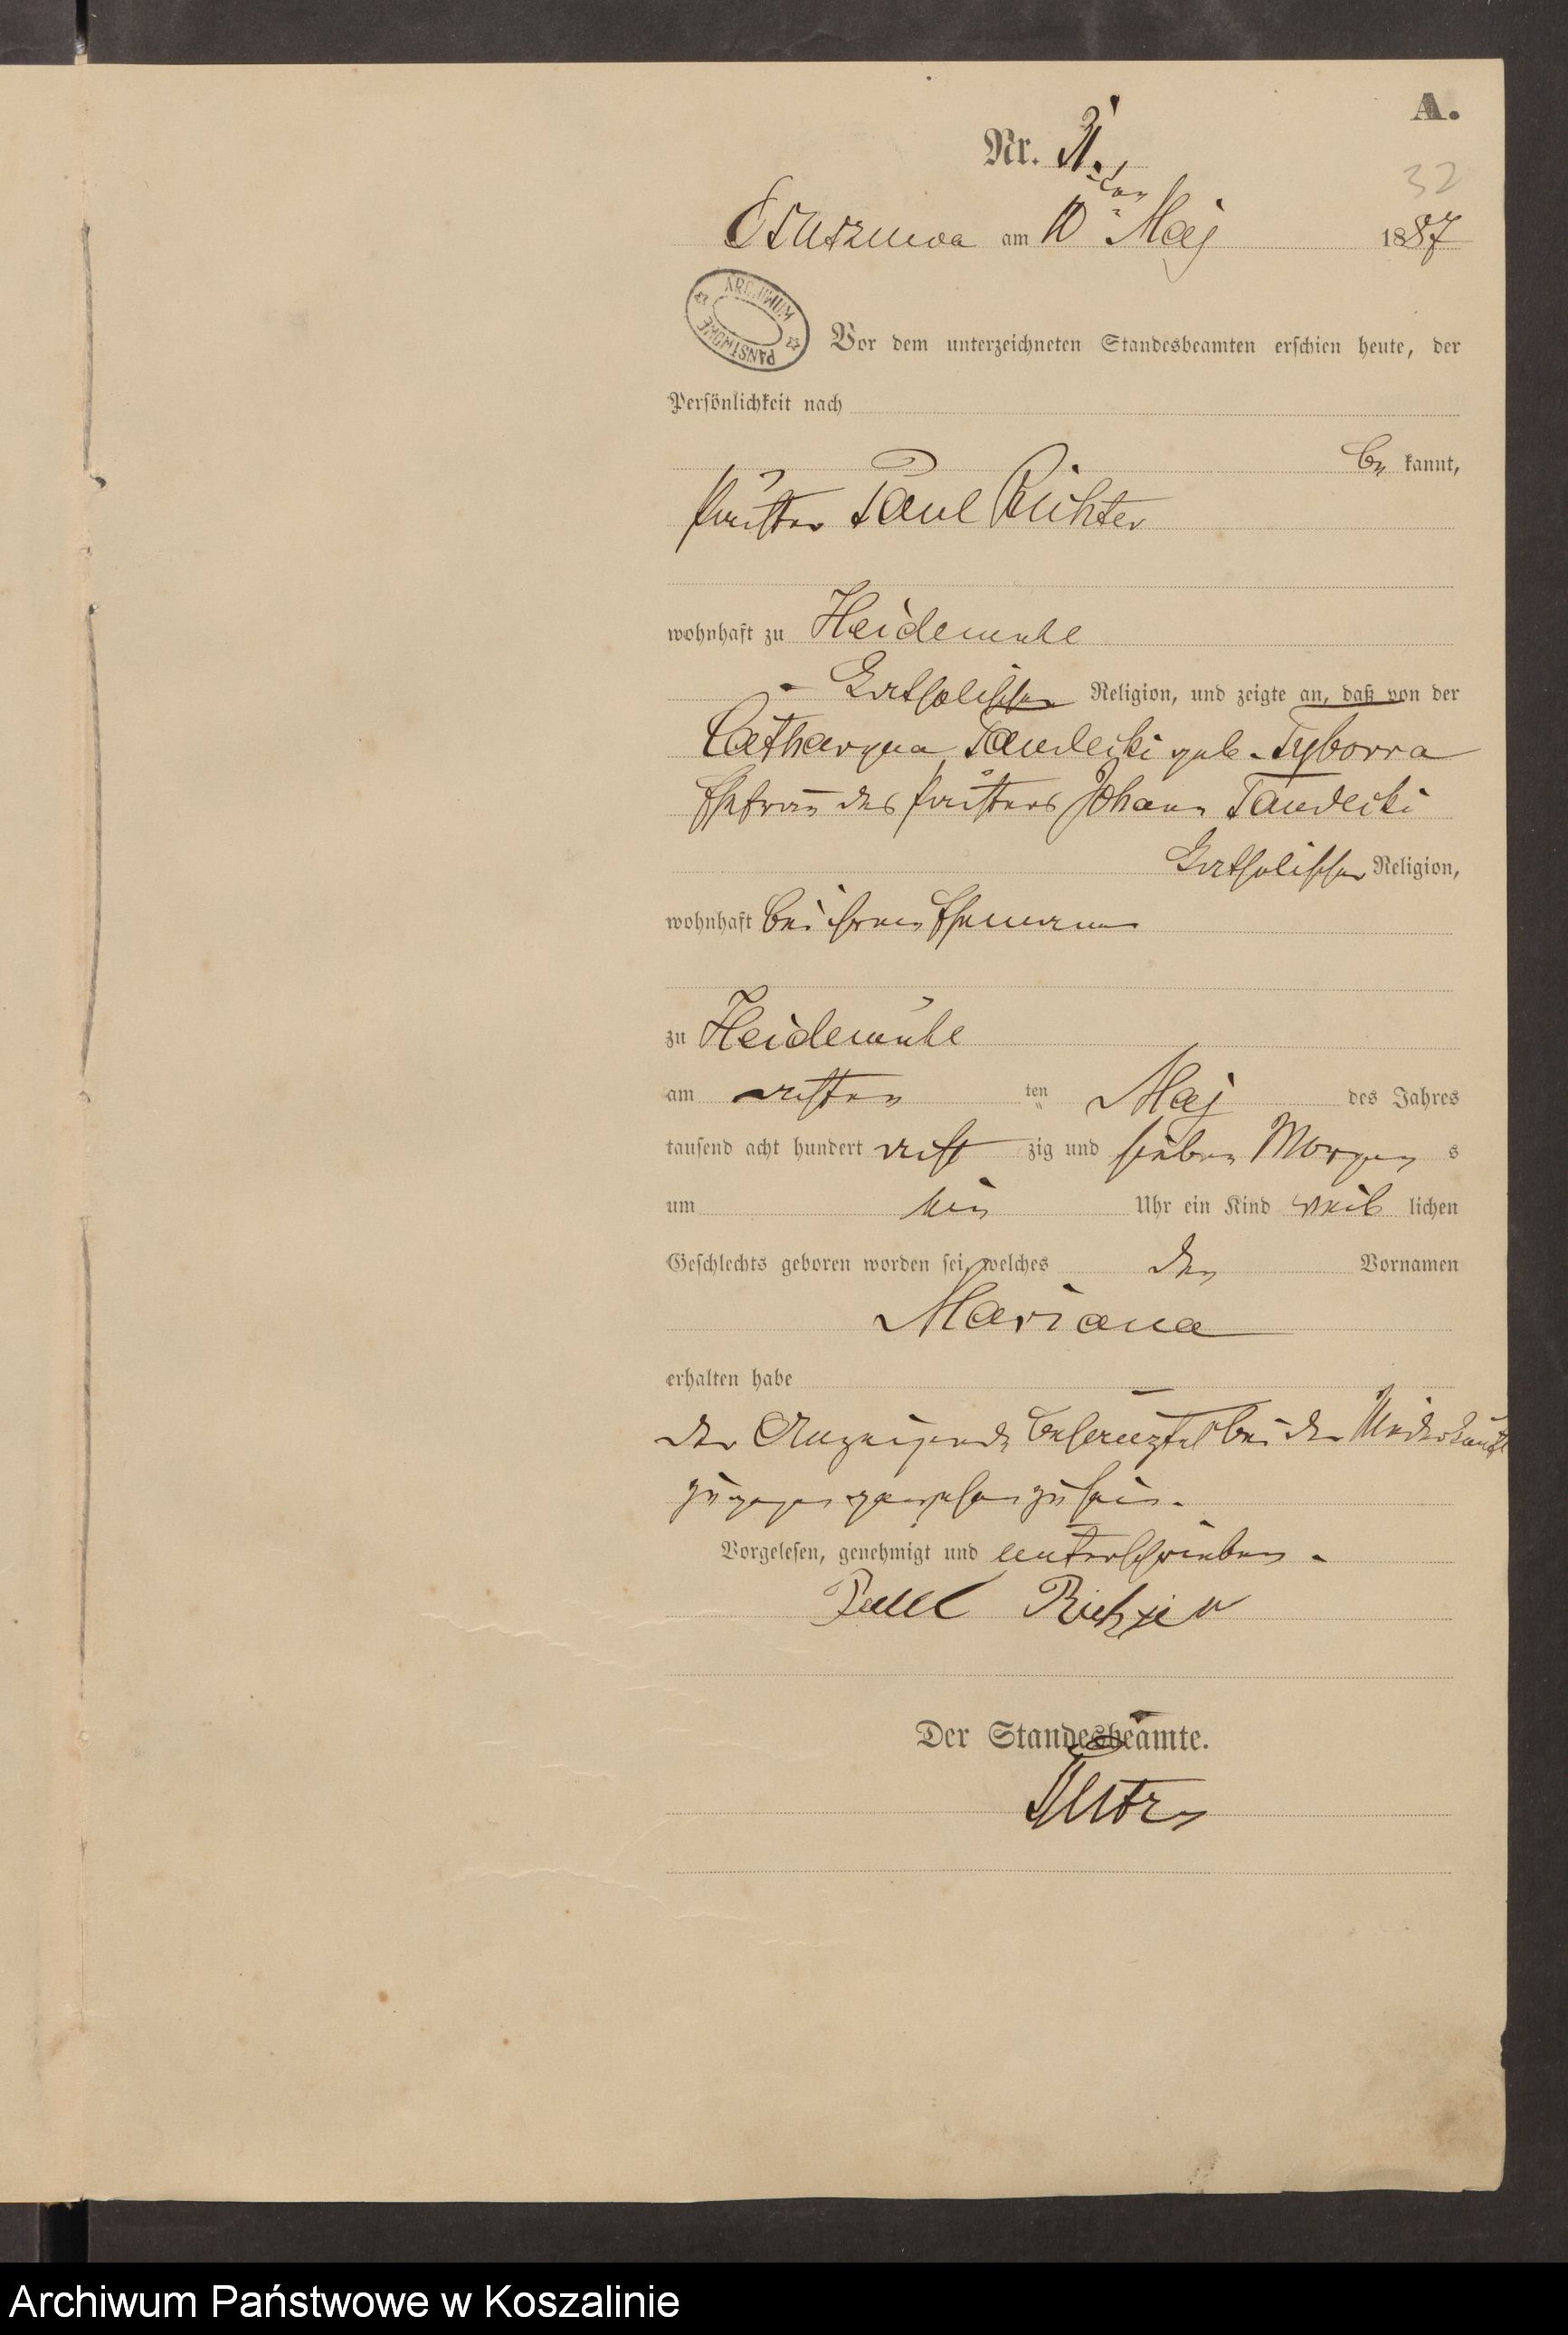 A.
Nr. 31.
32
am 10ten Maj 1887
ARCHIWUM PAŃSTWOWE
Vor dem unterzeichneten Standesbeamten erschien heute, der
Persönlichkeit nach
be kannt,
Paul Richter
wohnhaft zu Heidemühle
Katholischer Religion, und zeigte an, daß von der
Catharyna Tandecki geb. Tyborra
Ehefrau des Johann Tandecki
Katholischer Religion,
wohnhaft bei ihrem Ehemann
zu Heidemühle
am achten ten Maj des Jahres
tausend acht hundert acht zig und sieben Morgen s
um Uhr ein Kind weib lichen
Geschlechts geboren worden sei, welches den Vornamen
Mariana
erhalten habe
der Anzeigende bei der Niederkunft
zugegen gewesen zu sein.
Vorgelesen, genehmigt und unterschrieben.
Paul Richter
Der Standesbeamte.
Archiwum Państwowe w Koszalinie